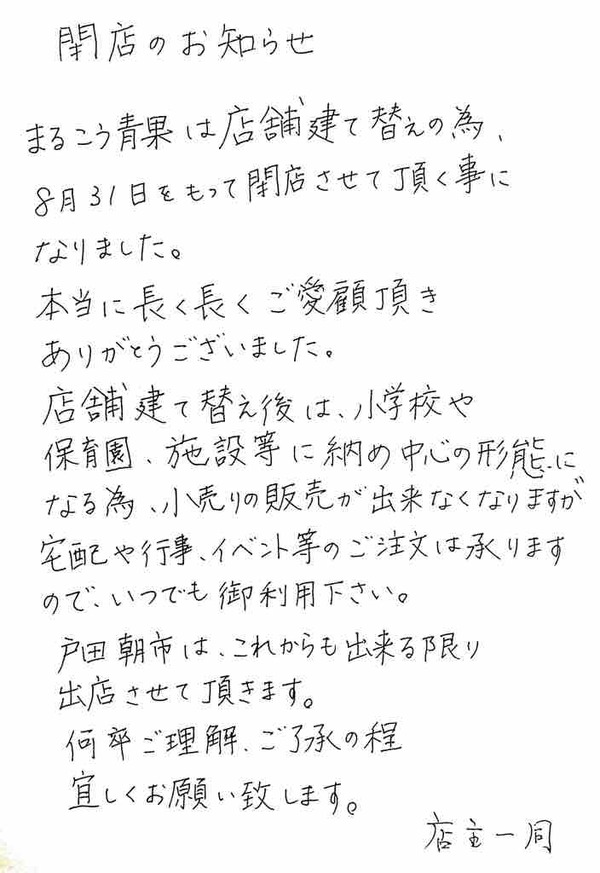 閉店のお知らせ
まるこう青果は店舗建て替えの為、
8月31日をもって閉店させて頂く事に
なりました。
本当に長く長くご愛顧頂き
ありがとうございました。
店舗建て替え後は、小学校や
保育園、施設等に納め中心の形態に
なる為、小売りの販売が出来なくなりますが
宅配や行事、イベント等のご注文は承ります
ので、いつでも御利用下さい。
戸田朝市は、これからも出来る限り
出店させて頂きます。
何卒ご理解、ご了承の程
宜しくお願い致します。
店主一同